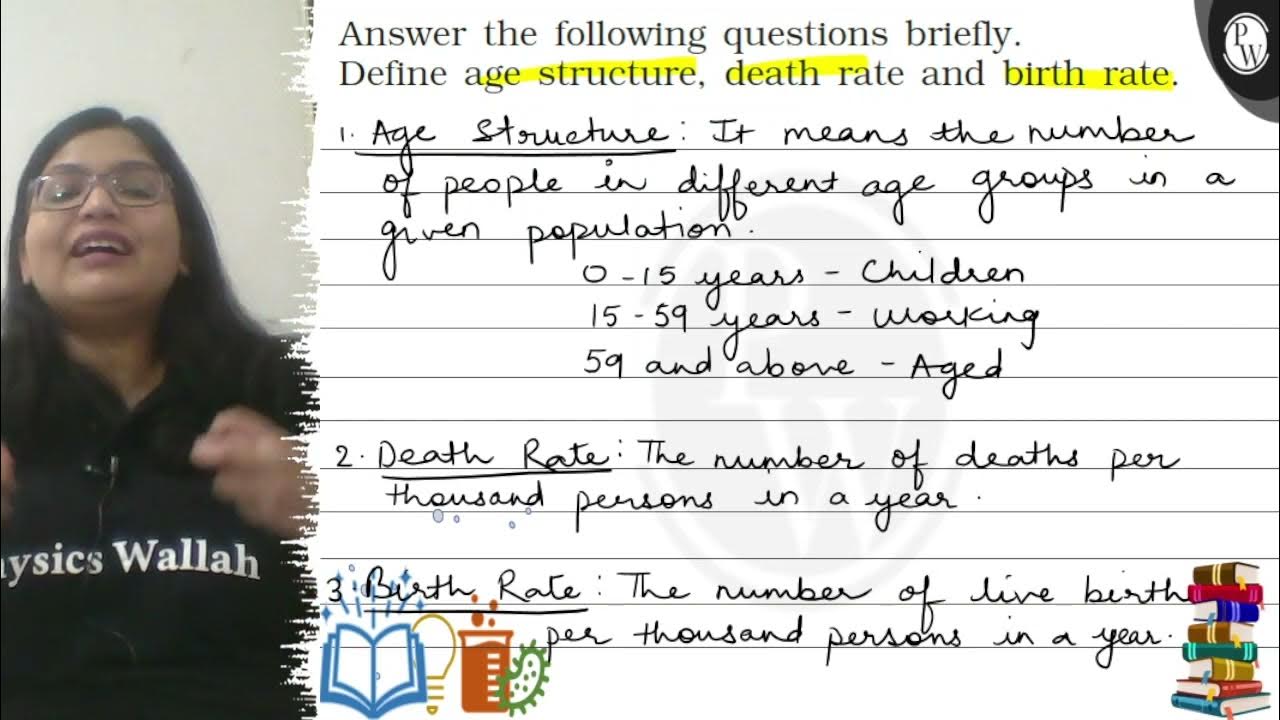 Answer the following questions briefly.
Define age structure, death rate and birth rate.
1. Age Structure : It means the number
of people in different age groups in a
given population.
0 - 15 years - Children
15 - 59 years - Working
59 and above - Aged
2. Death Rate : The number of deaths per
thousand persons in a year.
3. Birth Rate : The number of live birth
per thousand persons in a year.
PW
PW
hysics Wallah